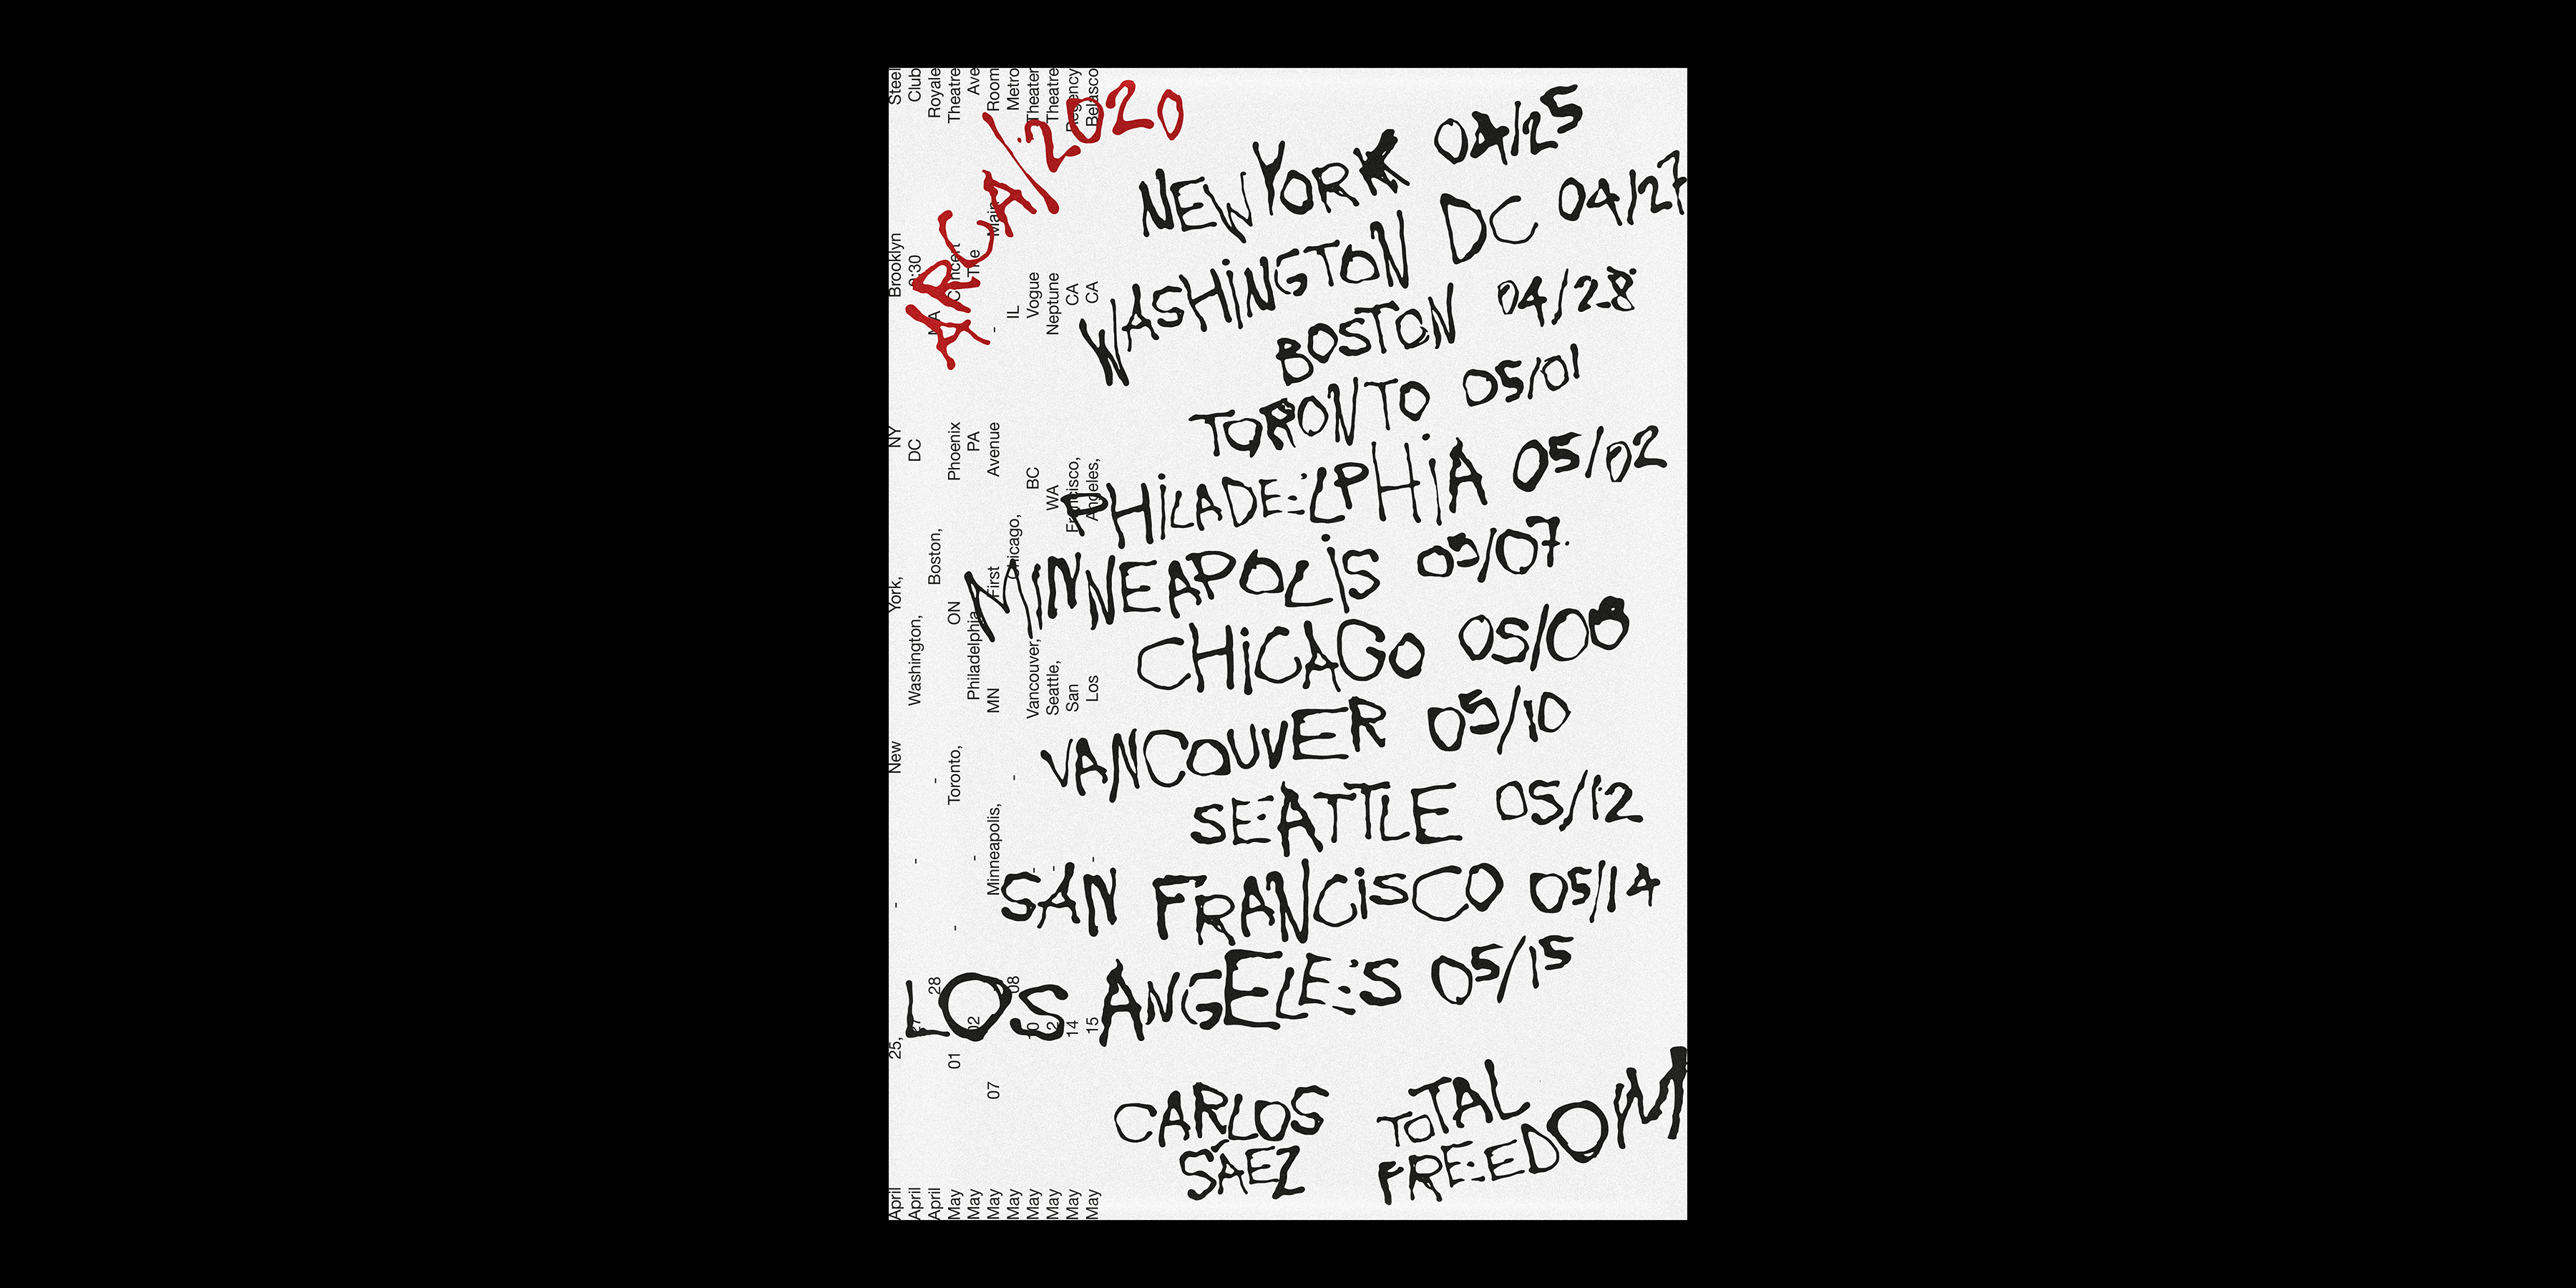 ARCA/2020
NEW YORK 04/25
WASHINGTON DC 04/27
BOSTON 04/28
TORONTO 05/01
PHILADELPHIA 05/02
MINNEAPOLIS 05/07
CHICAGO 05/08
VANCOUVER 05/10
SEATTLE 05/12
SAN FRANCISCO 05/14
LOS ANGELES 05/15
CARLOS
SÁEZ
TOTAL
FREEDOM
April 25, - New York, NY Brooklyn Steel
April 27 - Washington, DC 9:30 Club
April 28 - Boston, MA Royale
May 01 - Toronto, ON Phoenix Concert Theatre
May 02 - Philadelphia PA The Ave
May 07 Minneapolis, MN First Avenue - Main Room
May 08 - Chicago, IL Metro
May 10 - Vancouver, BC Vogue Theater
May 12 - Seattle, WA Neptune Theatre
May 14 San Francisco, CA Regency
May 15 - Los Angeles, CA Belasco